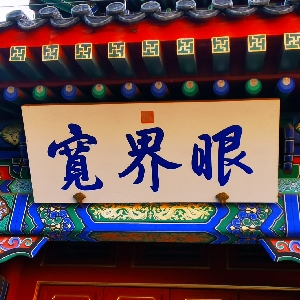 眼界寬